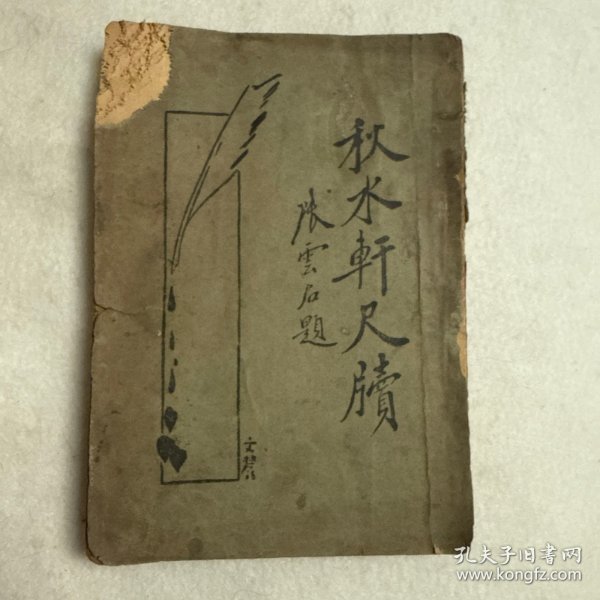 秋水軒尺牘
張雲石題
孔夫子旧書网
www.kongfz.com